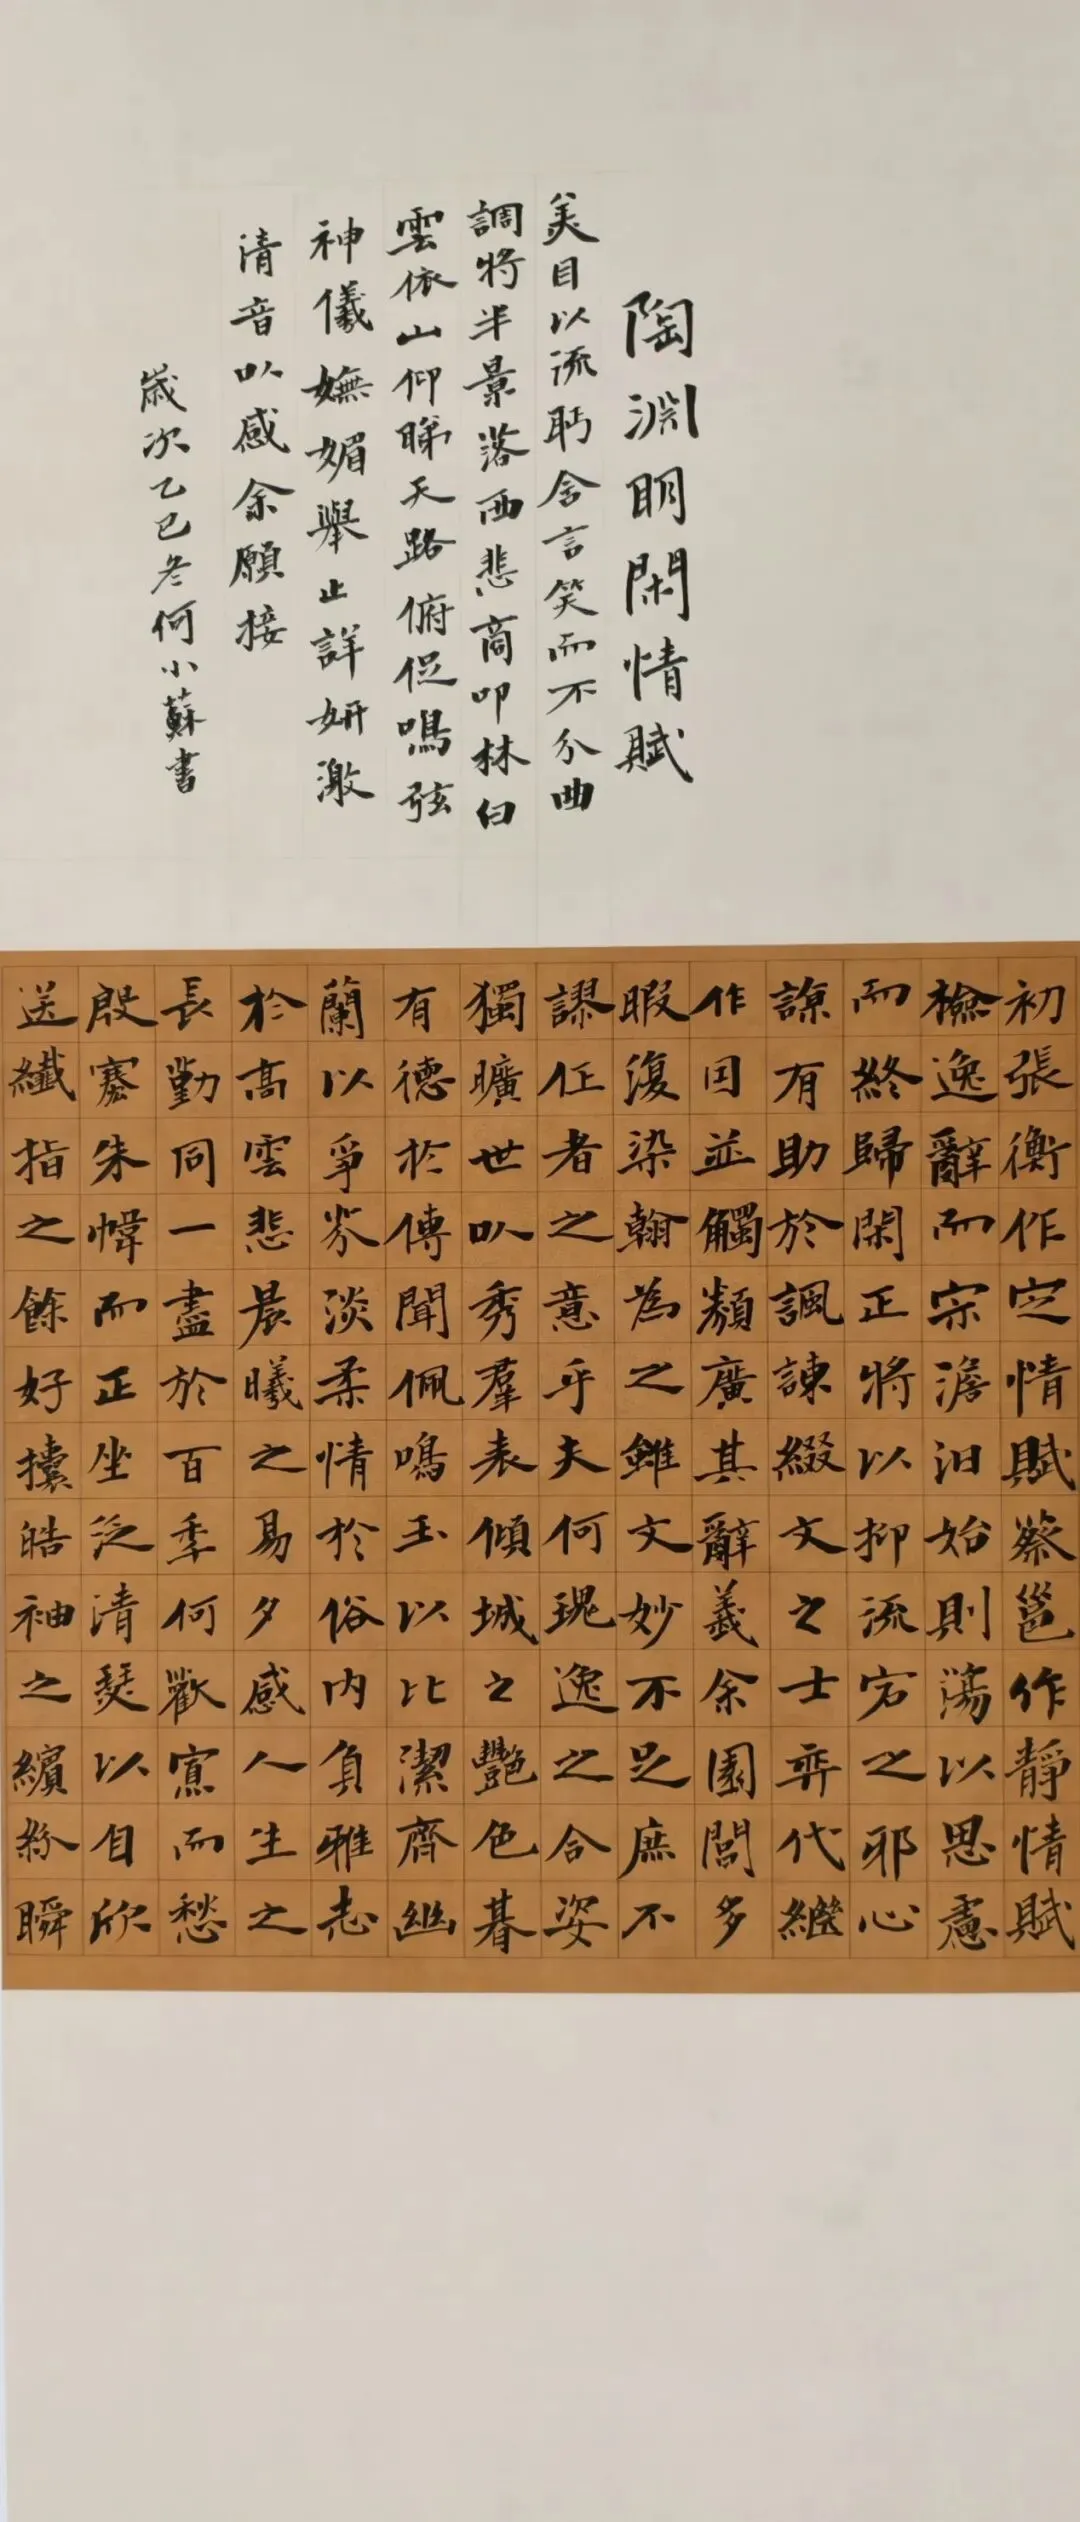 陶淵明閑情賦
美目以流眄含言笑而不分曲
調將半景落西悲商叩林白
雲依山仰睇天路俯促鳴弦
神儀嫵媚舉止詳妍激
清音以感余願接
歲次乙巳冬何小蘇書
初張衡作定情賦蔡邕作靜情賦
檢逸辭而宗澹泊始則蕩以思慮
而終歸閑正將以抑流宕之邪心
諒有助於諷諫綴文之士弈代繼
作因並觸類廣其辭義余園閭多
暇復染翰為之雖文妙不足庶不
謬作者之意乎夫何瑰逸之令姿
獨曠世以秀羣表傾城之艷色暮
有德於傳聞佩鳴玉以比潔齊幽
蘭以爭芬淡柔情於俗內負雅志
於高雲悲晨曦之易夕感人生之
長勤同一盡於百年何歡寡而愁
殷褰朱幃而正坐泛清瑟以自欣
送纖指之餘好攘皓袖之繽紛瞬